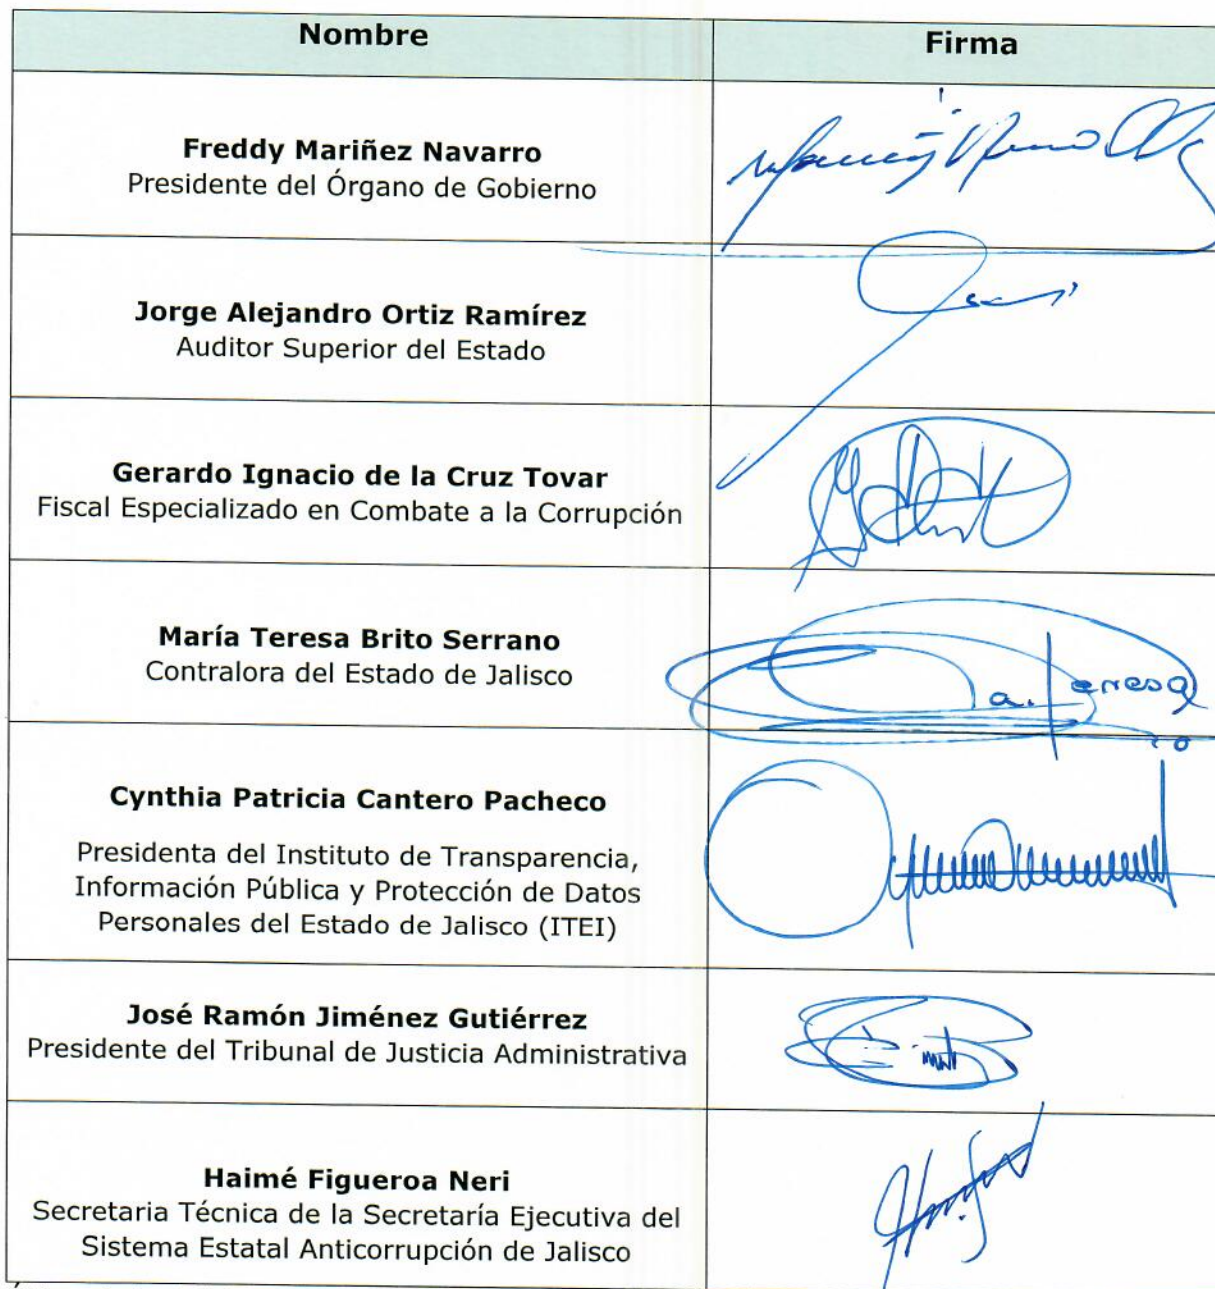 Nombre
Firma
Freddy Mariñez Navarro
Presidente del Órgano de Gobierno
Jorge Alejandro Ortiz Ramírez
Auditor Superior del Estado
Gerardo Ignacio de la Cruz Tovar
Fiscal Especializado en Combate a la Corrupción
María Teresa Brito Serrano
Contralora del Estado de Jalisco
a. Teresa
Cynthia Patricia Cantero Pacheco
Presidenta del Instituto de Transparencia,
Información Pública y Protección de Datos
Personales del Estado de Jalisco (ITEI)
José Ramón Jiménez Gutiérrez
Presidente del Tribunal de Justicia Administrativa
Haimé Figueroa Neri
Secretaria Técnica de la Secretaría Ejecutiva del
Sistema Estatal Anticorrupción de Jalisco